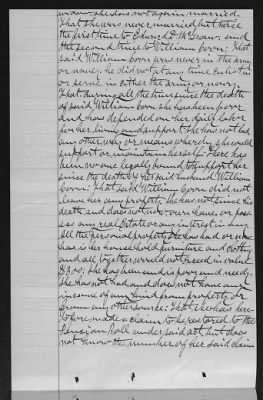 widow. she does not again married.
That she was never married but twice
the first time to Edward L. McGraw. and
the second time to William Corn: That
said William Corn was never in the army
or navy. he did not at any time enlist in
or serve in either the army or navy.
That during all the time since the death
of said William Corn she has been poor
and has depended on her daily labor
for her living and support She has not had
any other way or means whereby she could
support or maintain herself: There has
been no one legally bound to support her
since the death of her said husband William
Corn: That said William Corn did not
leave her any property. She has not since his
death and does not now, own, have or poss-
ess any real Estate or any interest in any
All the personal property She has had or now
has is her household furniture and clothing
and all together would not exceed in value
$30: She has been and is poor and needy.
She has not had and does not have any
income of any kind from property or
from any other source: That she has here-
tofore made a claim to be restored to the
Pension Roll under said act but does
not know the number of her said claim